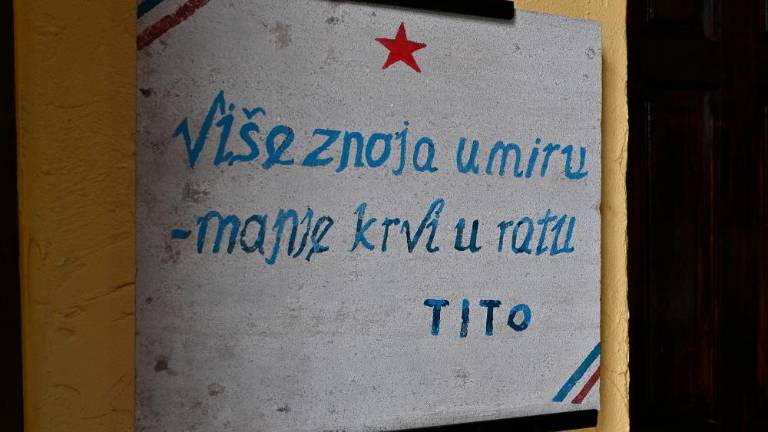 Više znoja u miru
-manje krvi u ratu
TITO